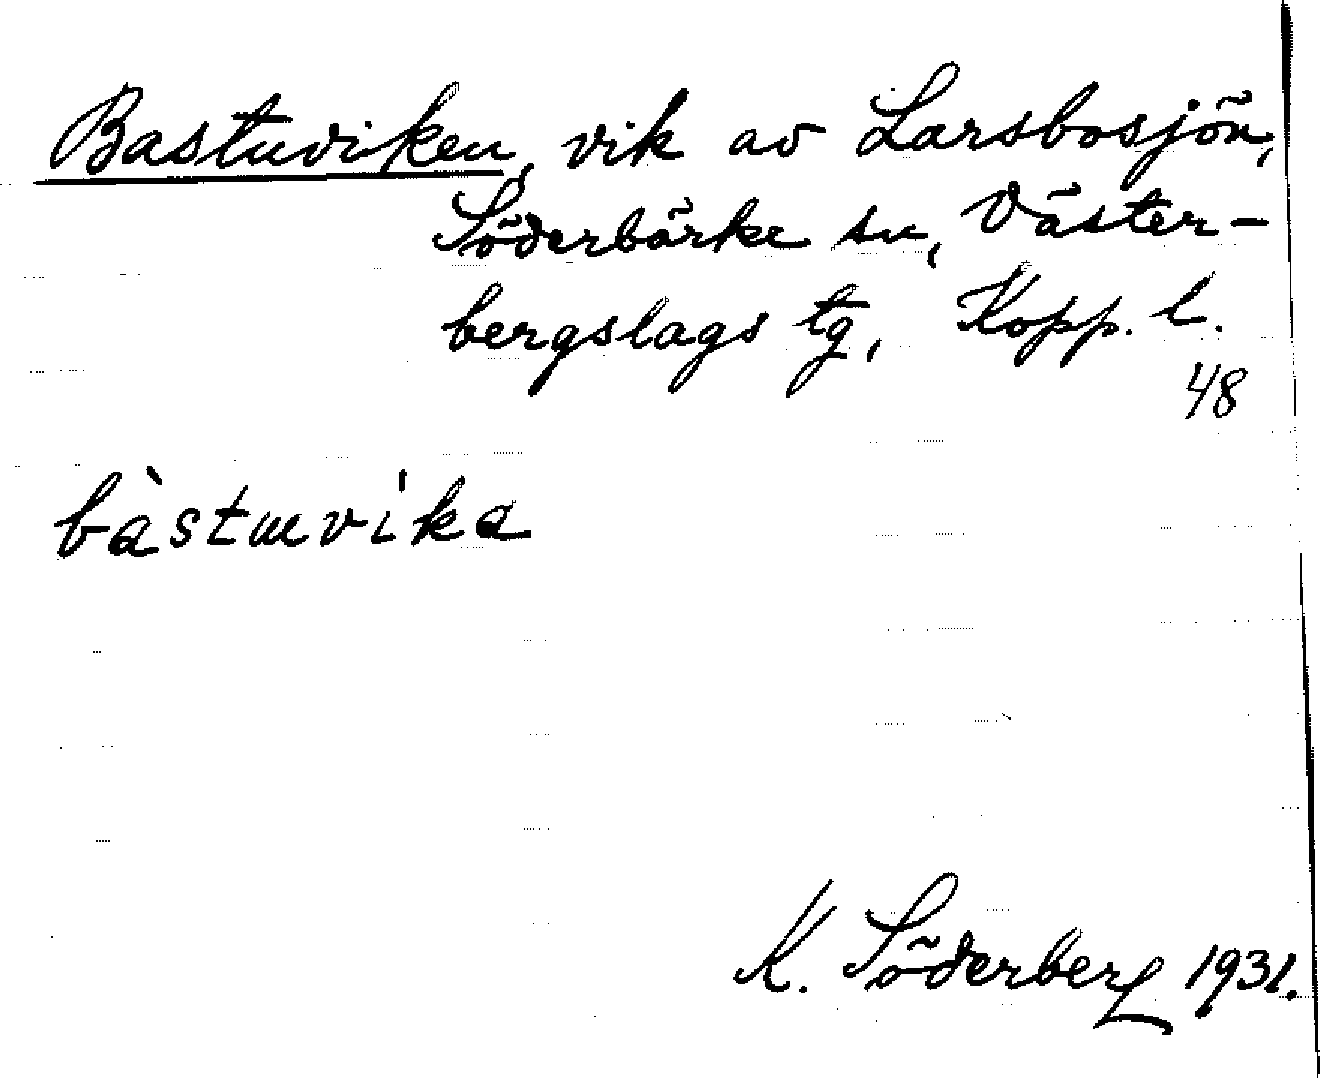 Bastuviken, vik av Larsbosjön,
Söderbärke sn, Väster-
bergslags tg, Kopp. l.
48
bàstuvika
K. Söderberg 1931.